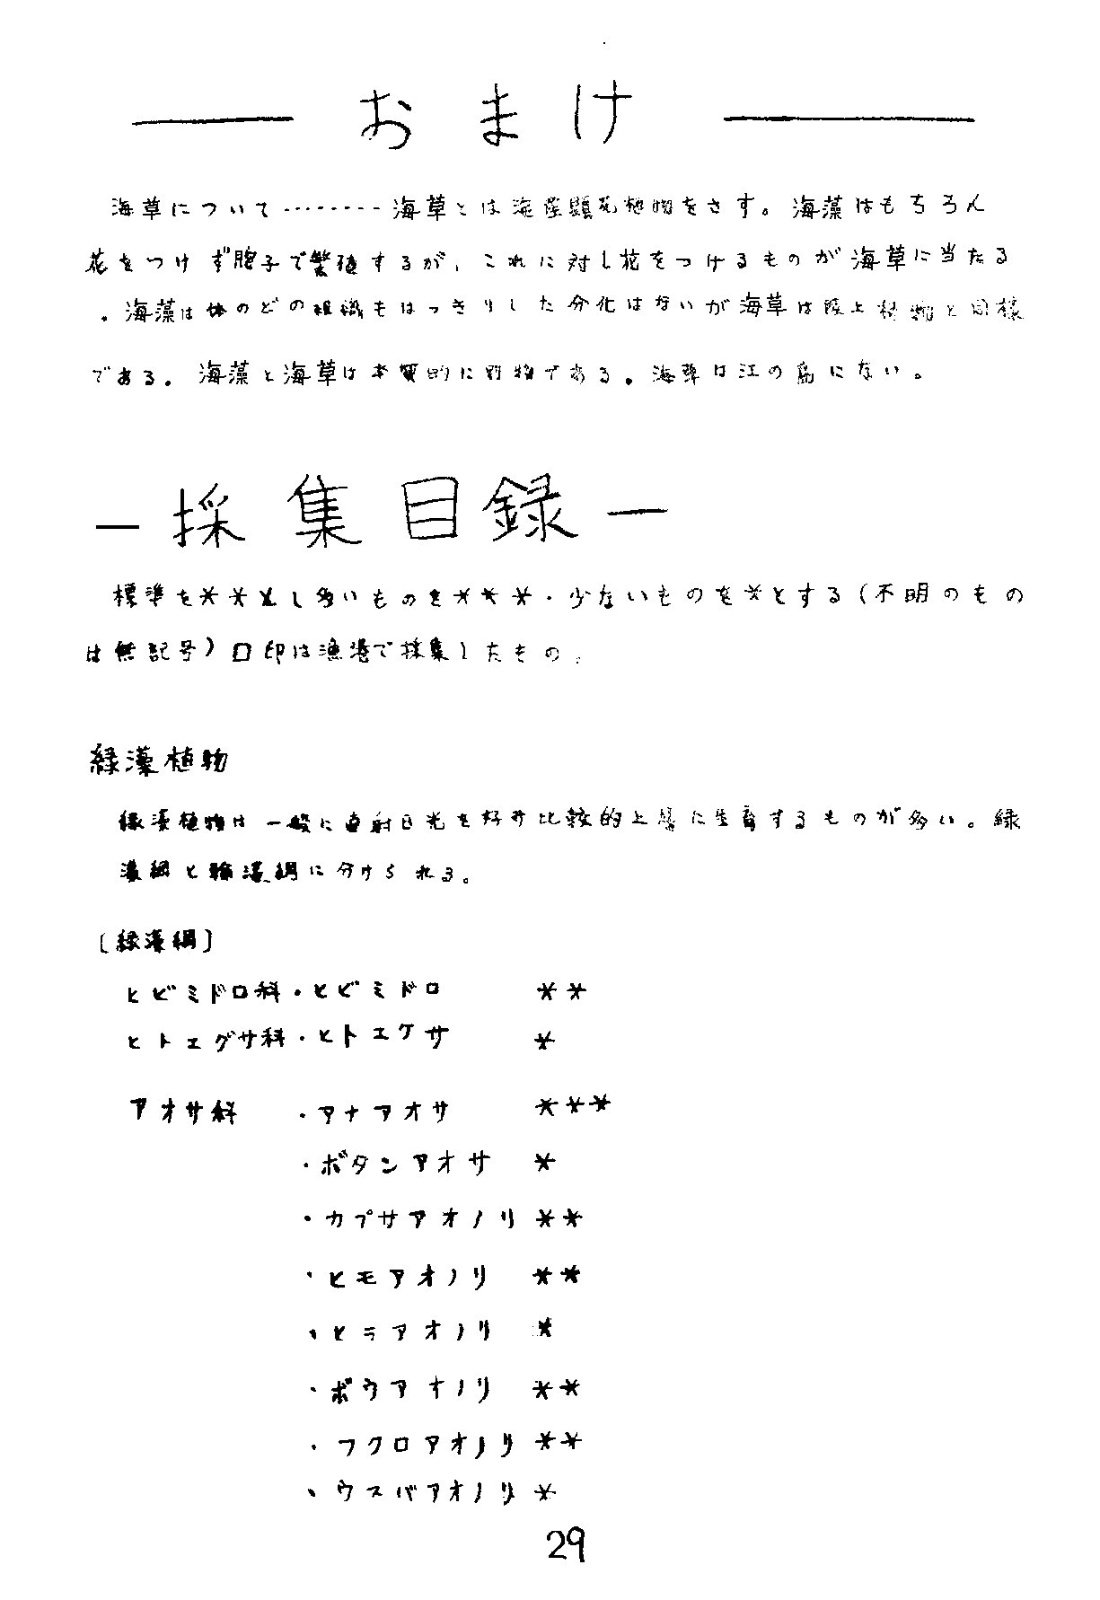 おまけ
海草について………海草とは海産顕花植物をさす。海藻はもちろん
花をつけず胞子で繁殖するが、これに対し花をつけるものが海草に当たる
。海藻は体のどの組織もはっきりした分化はないが海草は陸上植物と同様
である。海藻と海草は本質的に別物である。海草は江の島にない。
―採集目録―
標準を**とし多いものを***・少ないものを*とする(不明のもの
は無記号)□印は漁港で採集したもの。
緑藻植物
緑藻植物は一般に直射日光を好み比較的上層に生育するものが多い。緑
藻綱と輪藻綱に分けられる。
〔緑藻綱〕
ヒビミドロ科・ヒビミドロ **
ヒトエグサ科・ヒトエグサ *
アオサ科 ・アナアオサ ***
・ボタンアオサ *
・カプサアオノリ **
・ヒモアオノリ **
・ヒラアオノリ *
・ボウアオノリ **
・フクロアオノリ **
・ウスバアオノリ *
29